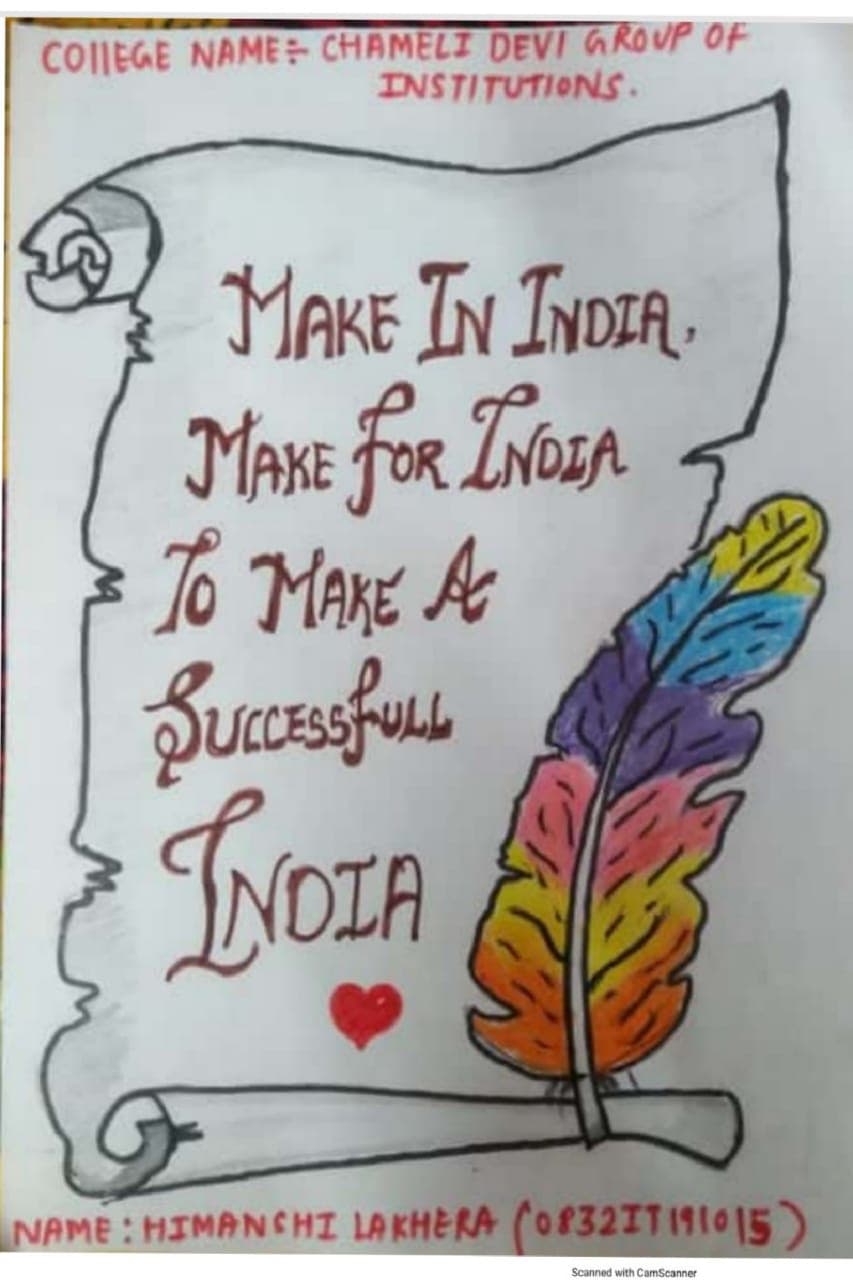 COllEGE NAME:- CHAMELI DEVI GROUP OF
INSTITUTIONS.
MAKE IN INDIA,
MAKE FOR INDIA
TO MAKE A
SUCCESSFULL
INDIA
NAME: HIMANCHI LAKHERA (0832IT191015)
Scanned with CamScanner